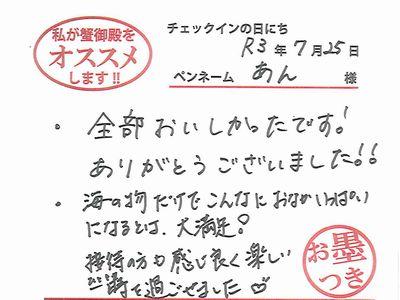 私が蟹御殿を
オススメ
します!!
チェックインの日にち
R3年7月25日
ペンネーム あん 様
・全部おいしかったです!
ありがとうございました!!
・海の物だけでこんなにおなかいっぱい
になるとは、大満足!
接待の方も感じ良く楽しい
時を過ごせました♡
お墨
つき